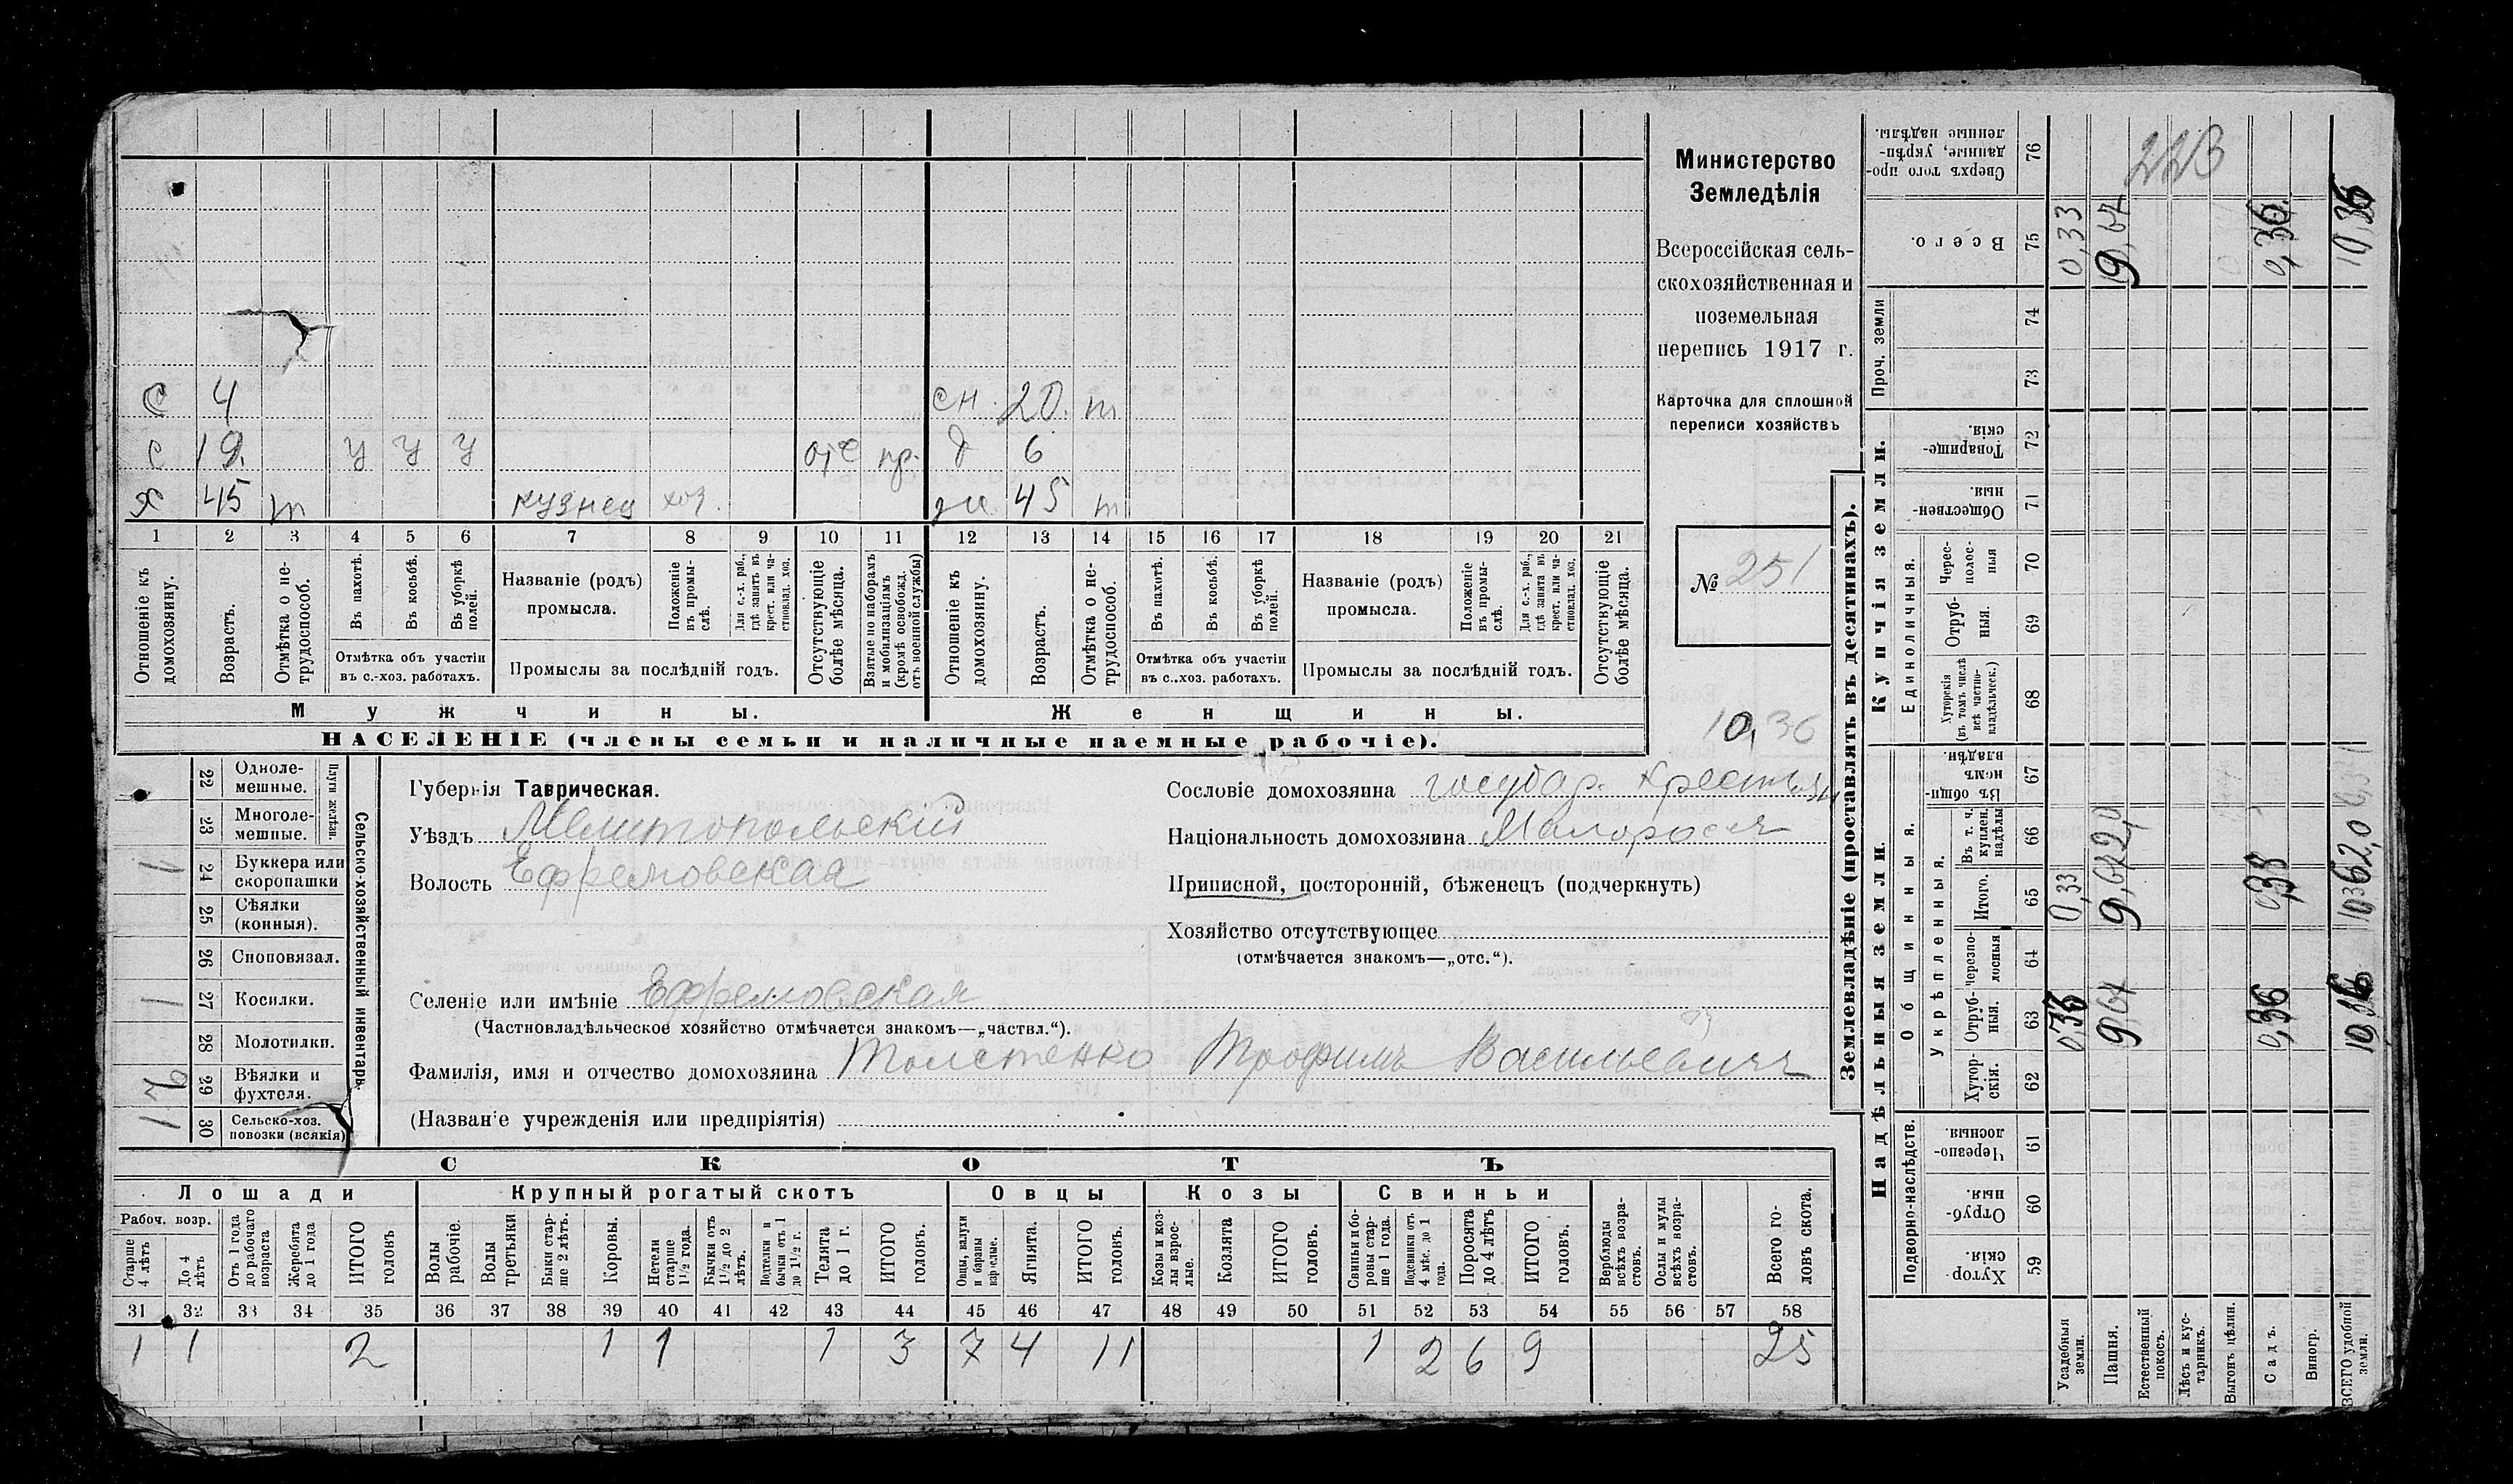 Министерство
Земледѣлія
Всероссійская сель-
скохозяйственная и
поземельная
перепись 1917 г.
Карточка для сплошной
переписи хозяйствъ
№ 251
10,36
С 4 сн. 20. т
с 19. у у у отс пр. д 6
х 45 т кузнец хоз. ж 45 т
1 2 3 4 5 6 7 8 9 10 11 12 13 14 15 16 17 18 19 20 21
Отношеніе къ домохозяину.
Возрастъ.
Отмѣтка о не-трудоспособ.
Въ пахотѣ.
Въ косьбѣ.
Въ уборкѣ полей.
Отмѣтка объ участіи
въ с.-хоз. работахъ.
Названіе (родъ)
промысла.
Положеніе въ промы-слѣ.
Для с.-х. раб., гдѣ занятъ въ крест. или ча-стновлад. хоз.
Промыслы за послѣдній годъ.
Отсутствующіе болѣе мѣсяца.
Взятые по наборамъ и мобилизаціямъ (кромѣ освобожд. отъ военной службы)
Отношеніе къ домохозяину.
Возрастъ.
Отмѣтка о не-трудоспособ.
Въ пахотѣ.
Въ косьбѣ.
Въ уборкѣ полей.
Отмѣтка объ участіи
въ с..хоз. работахъ.
Названіе (родъ)
промысла.
Положеніе въ промы-слѣ.
Для с.-х. раб., гдѣ занята въ крест. или ча-стновлад. хоз.
Промыслы за послѣдній годъ.
Отсутствующіе болѣе мѣсяца.
Мужчины. Женщины.
НАСЕЛЕНІЕ (члены семьи и наличные наемные рабочіе).
Сельско-хозяйственный инвентарь.
Плуги желѣзн.
22 Одноле-мешные.
23 Многоле-мешные.
1 24 Буккера или скоропашки
25 Сѣялки (конныя).
26 Сноповязал.
1 27 Косилки.
28 Молотилки.
29 Вѣялки и фухтеля.
1 30 Сельско-хоз. повозки (всякія)
Губернія Таврическая.
Уѣздъ Мелитопольский
Волость Ефремовская
Селеніе или имѣніе Ефремовская
(Частновладѣльческое хозяйство отмѣчается знакомъ—„частвл.“).
Фамилія, имя и отчество домохозяина Толстенко Трофимъ Васильевичъ
(Назван'е учрежденія или предпріятія)
Сословіе домохозяина государ. крестьян
Національность домохозяина Малоросъ
Приписной, посторонній, бѣженецъ (подчеркнуть)
Хозяйство отсутствующее
(отмѣчается знакомъ—„отс.“).
СКОТЪ
Лошади Крупный рогатый скотъ Овцы Козы Свиньи
Рабоч. возр.
Старше 4 лѣтъ
До 4 лѣтъ
Отъ 1 года до рабочаго возраста
Жеребята до 1 года
ИТОГО головъ
Волы рабочіе.
Волы третьяки
Быки стар-ше 2 лѣтъ.
Коровы.
Нетели старше 1½ года.
Бычки отъ 1½ до 2 лѣтъ.
Подтелки и бычки отъ 1 до 1½ г.
Телята до 1 г.
ИТОГО головъ.
Овцы, валухи и бараны взрослые.
Ягнята.
ИТОГО головъ.
Козы и коз-лы взрос-лые.
Козлята
ИТОГО головъ.
Свиньи и бо-ровы стар-ше 1 года.
Подсвинки отъ 4 мѣс. до 1 года.
Поросята до 4 лѣтъ
ИТОГО головъ.
Верблюды всѣхъ возра-стовъ.
Ослы и мулы всѣхъ возра-стовъ.
Всего го-ловъ скота.
31 32 33 34 35 36 37 38 39 40 41 42 43 44 45 46 47 48 49 50 51 52 53 54 55 56 57 58
1 1 2 1 1 1 3 7 4 11 1 2 6 9 25
Землевладѣніе (проставлять въ десятинахъ).
Надѣльныя земли.
Купчія земли.
Проч. земли
Подворно-наслѣдств.
Общинныя.
Укрѣпленныя.
Единоличныя.
59 Хутор-скія.
60 Отруб-ныя.
61 Черезпо-лосныя
62 Хутор-скія.
63 Отруб-ныя.
64 черезпо-лосныя
65 Итого.
66 Въ т. ч. куплен. надѣлы
67 Въ общи-номъ владѣн.
68 Хуторскія (въ томъ числѣ всѣ частно-владѣльческ.)
69 Отруб-ныя.
70 Черес-полос-ныя
71 Обществен-ныя.
72 Товарище-скія.
73
74
75 Всего.
76 Сверхъ того про-данные, укрѣп-ленные надѣлы.
Усадебныя земли.
Пашня.
Естественный покосъ.
Лѣсъ и кус-тарникъ.
Выгонъ цѣлин.
Садъ.
Виногр.
ВСЕГО удобной земли.
0,33
0,33
0,36
0,36.
10,36
223